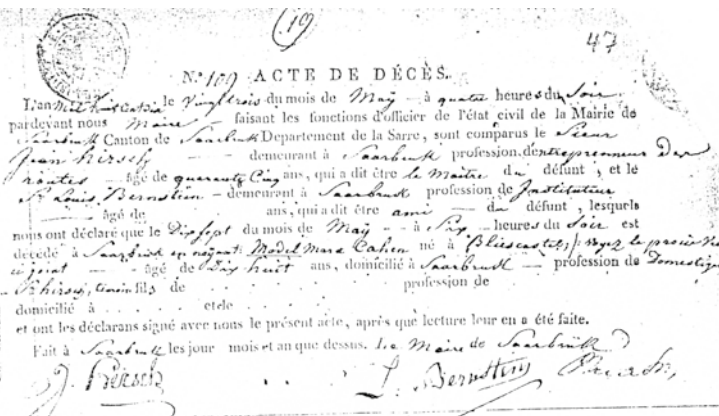 (19)
47
N.º 109 ACTE DE DÉCÈS.
L'an mil huit cent dix le vingt trois du mois de May - à quatre heures du Soir
pardevant nous Maire - faisant les fonctions d'officier de l'état civil de la Mairie de
Saarbruk Canton de Saarbruk Departement de la Sarre, sont comparus le Sieur
Jean hirsch - - demeurant à Saarbruk profession d'entreprenneur Des
routes - âgé de quarante Cinq ans, qui a dit être le Maitre du défunt, et le
Sr. Louis Bernstein - demeurant à Saarbruck profession de Instituteur
- âgé de ans, qui a dit être ami - du défunt, lesquels
nous ont déclaré que le Dix Sept du mois de May - - à Six - heures du Soir est
décédé à Saarbruk en nageant Model Marx Cahen né à Bliescastel / voyez le procès
ci joint - - âgé de Dix huit ans, domicilié à Saarbruck - profession de Domestique
hirsch, fils de . . . . profession de
domicilié à . . . et de . . . .
et ont les déclarans signé avec nous le présent acte, après que lecture leur en a été faite.
Fait à Saarbruk les jour mois et an que dessus. Le Maire de Saarbrük
J. Hirsch . . . L. Bernstein